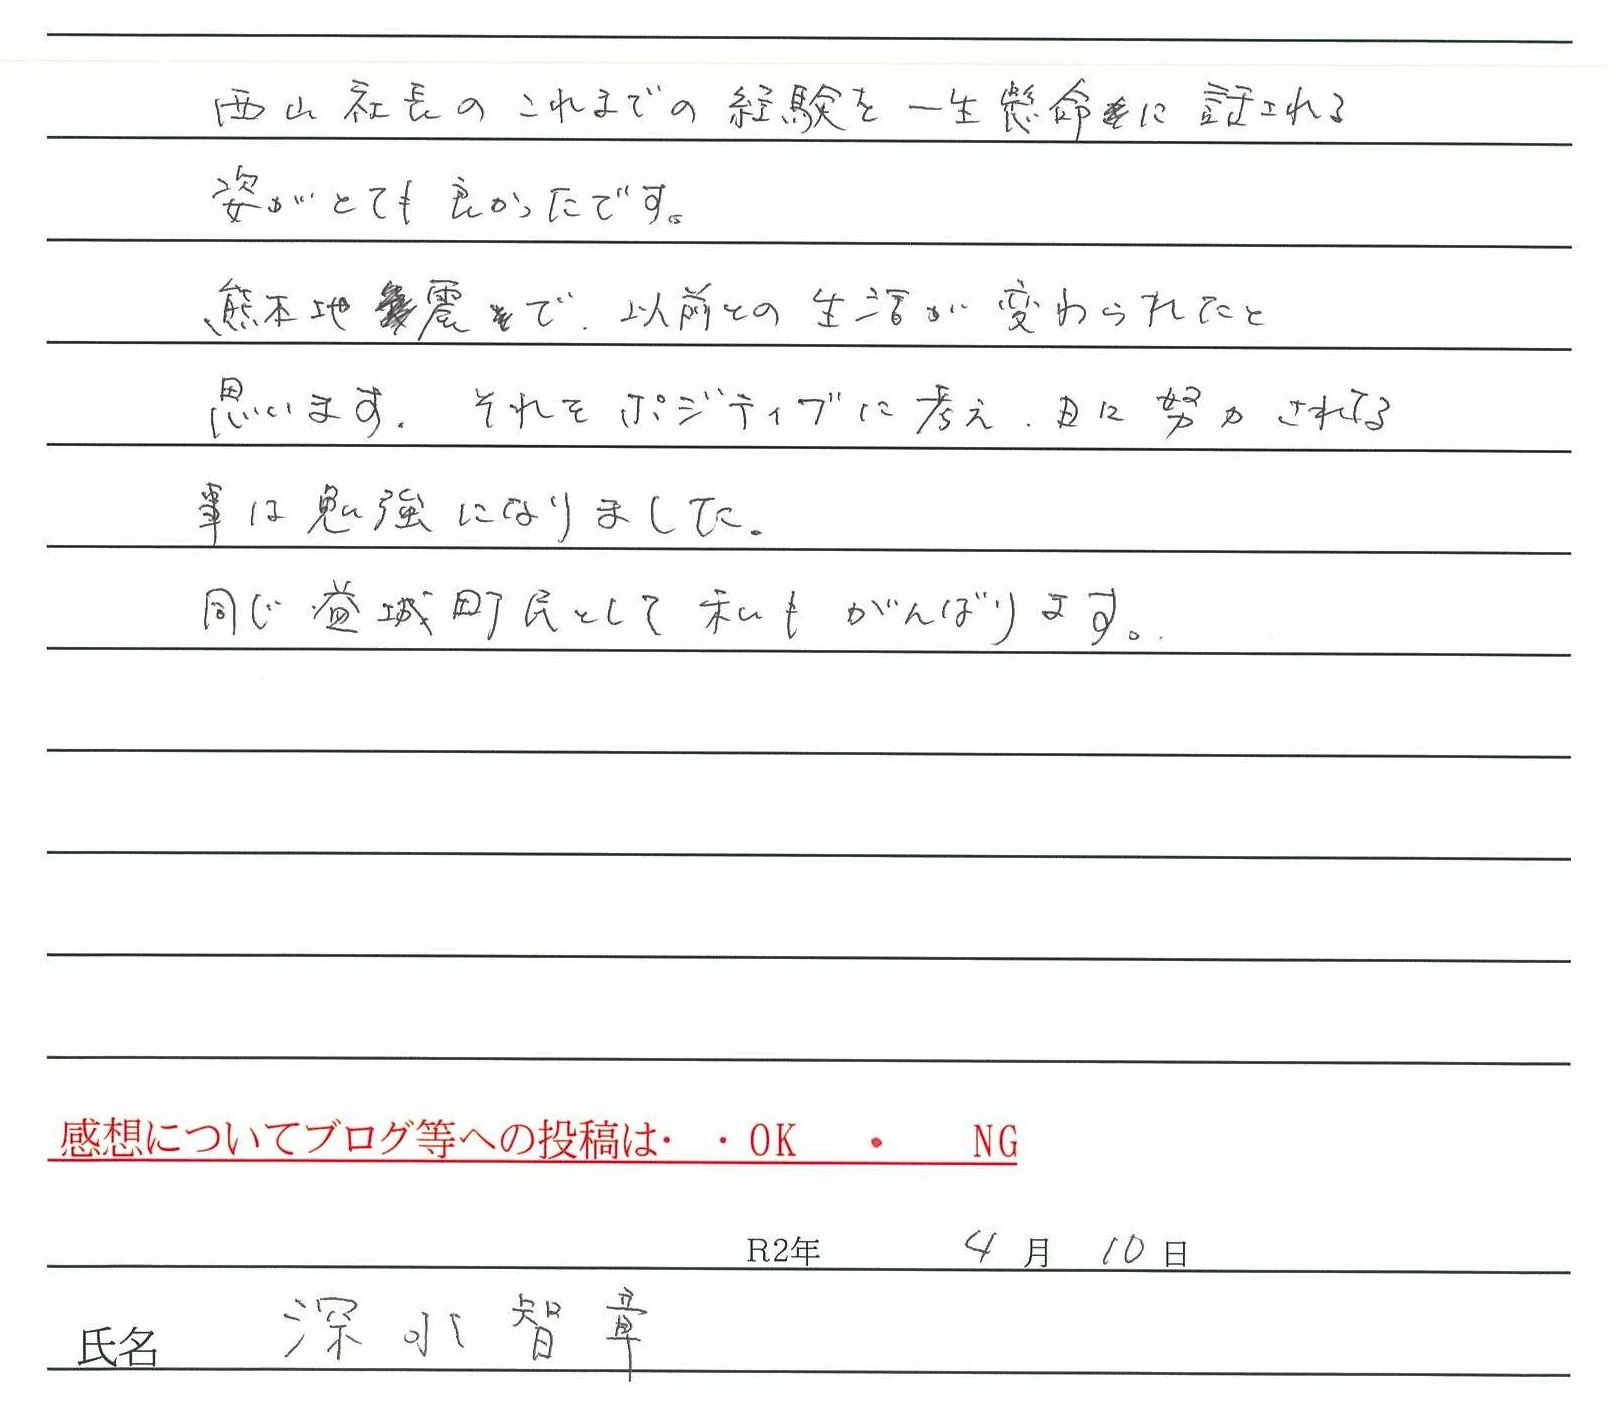 西山社長のこれまでの経験を一生懸命に話される
姿がとても良かったです。
熊本地震で、以前との生活が変わられたと
思います。それをポジティブに考え、日に努力されてる
事は勉強になりました。
同じ益城町民として私もがんばります。
感想についてブログ等への投稿は・・OK ・ NG
R2年 4月 10日
氏名 深水智章